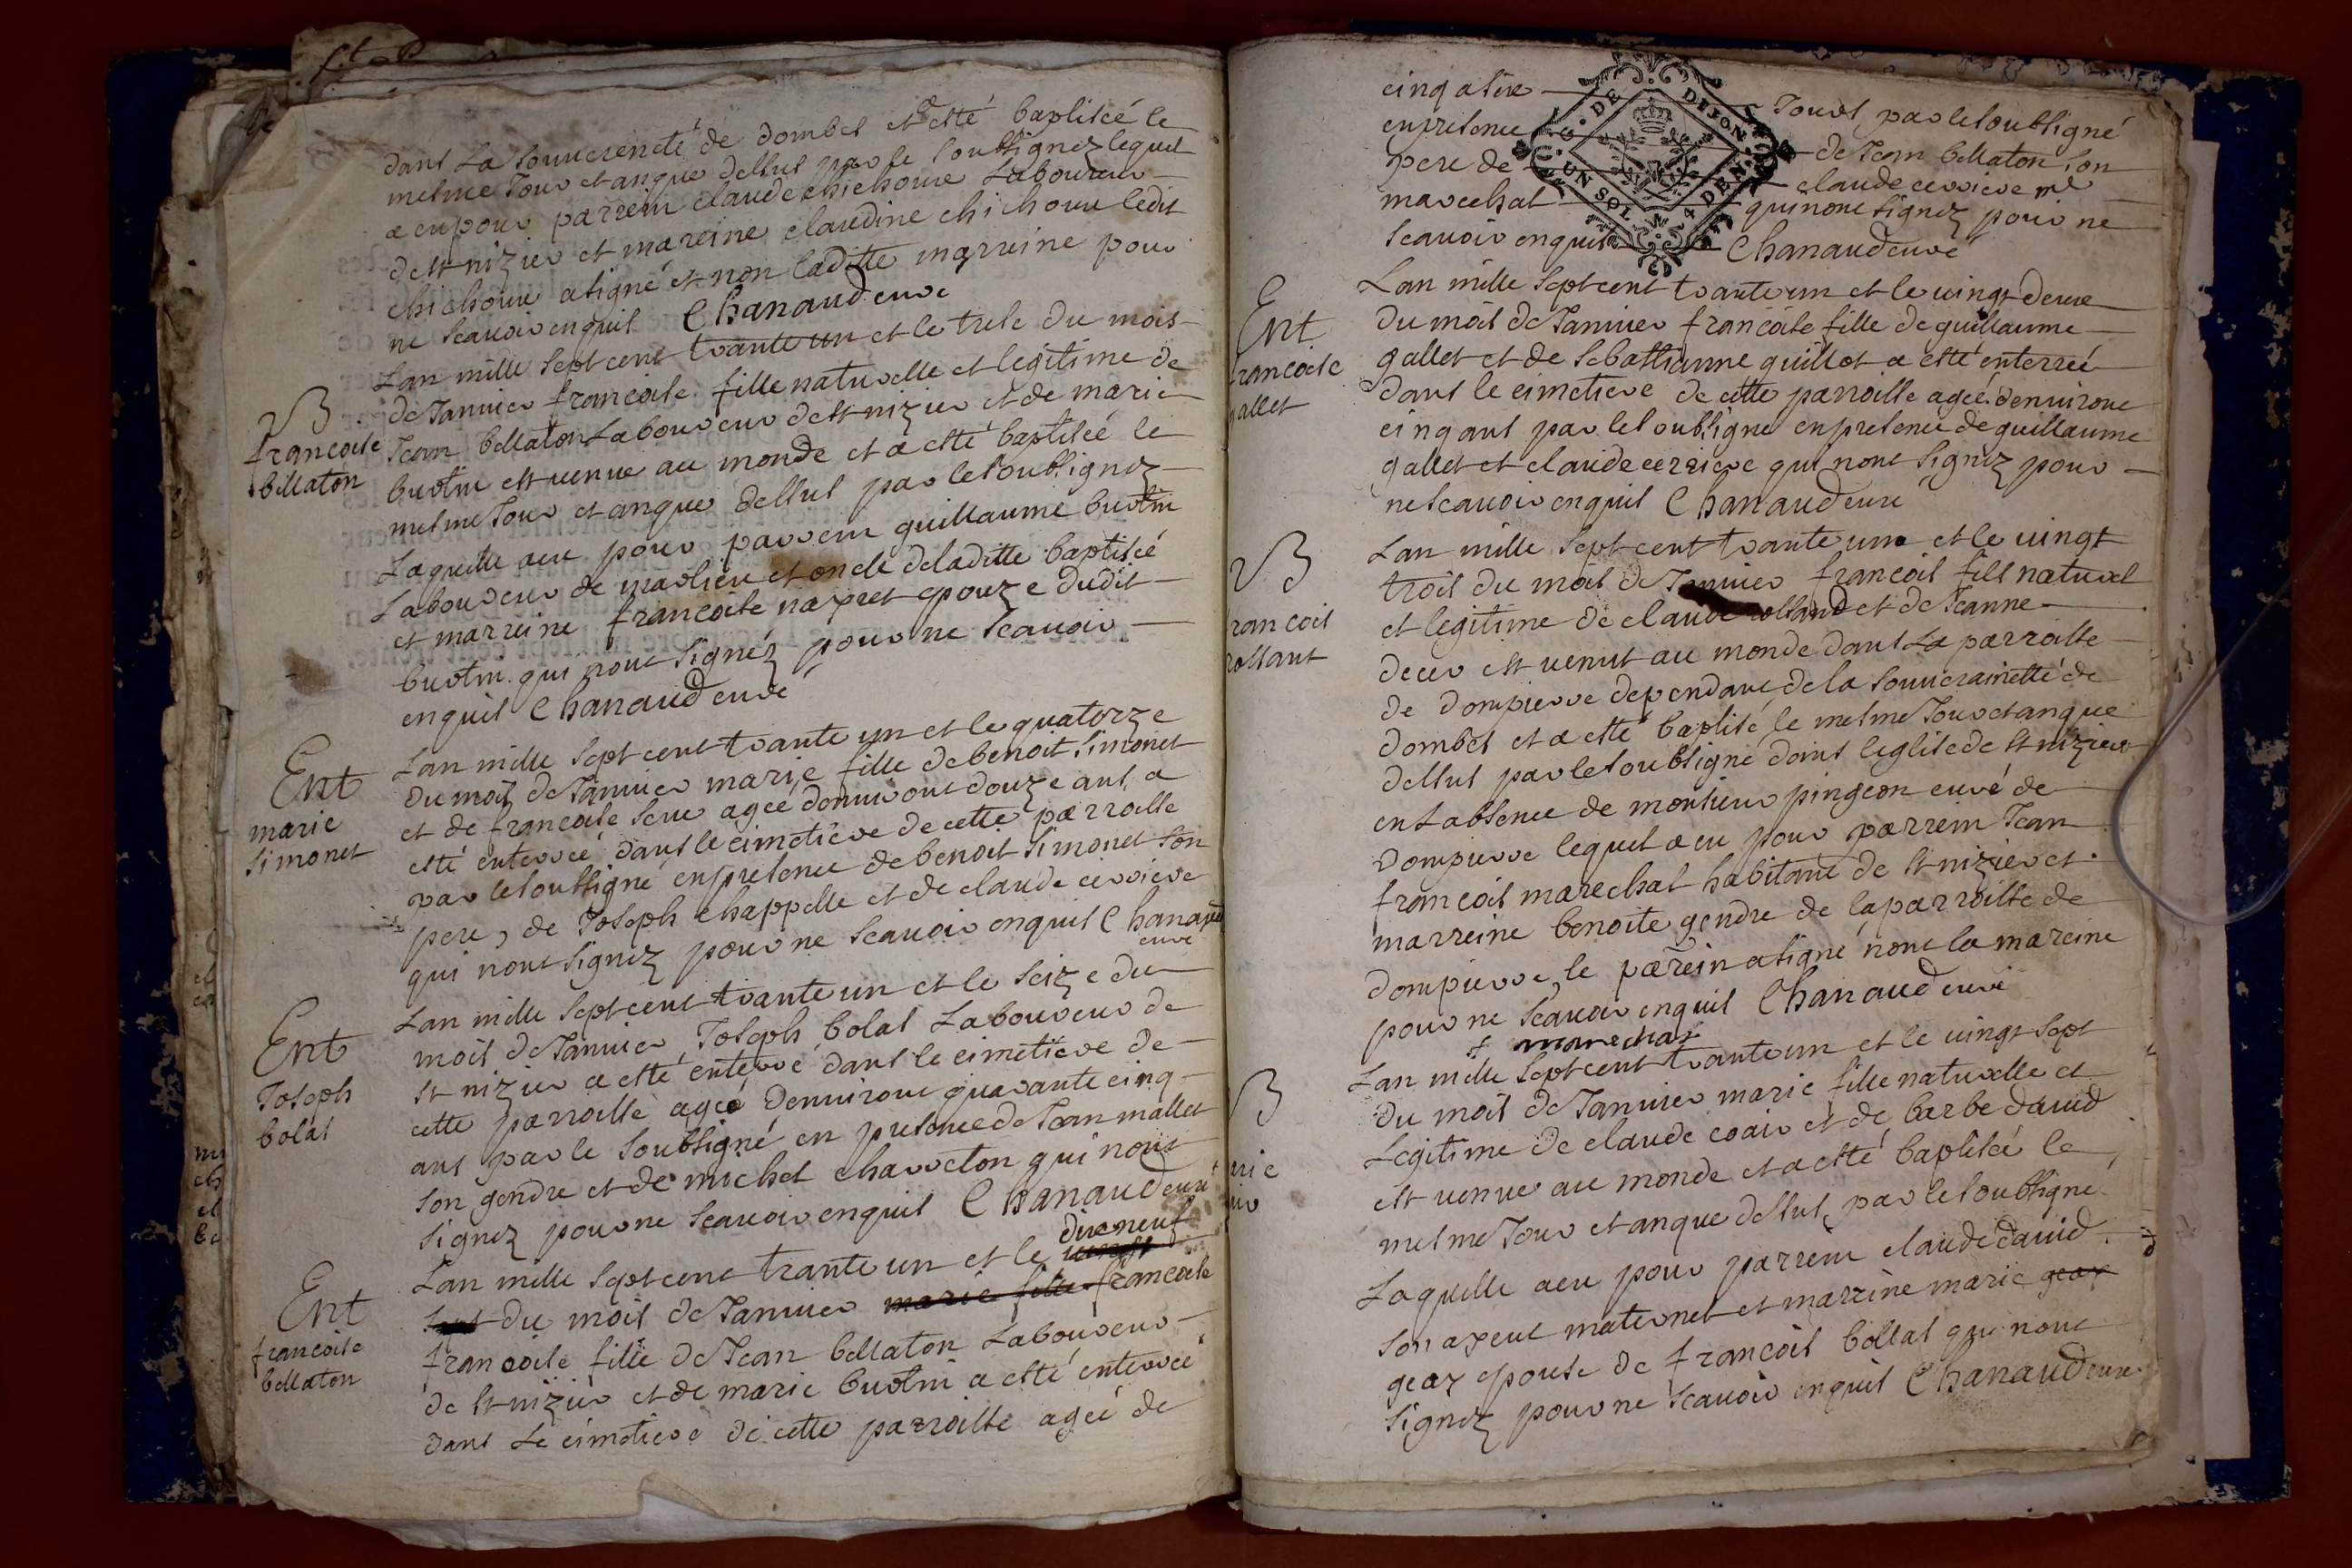 dans La souuereneté de dombes et a esté baptiseé le
mesme Jour et anque dessus par le soubsignez lequel
a eu pour parrein claude chichoux Laboureur
de st nizier et mareine claudine chichoux ledit
chichoux a signé et non laditte marreine pour
ne scauoir enquis Chanaud curé
Lan mille sept cent trante un et le trese du mois
B
francoise
bellaton
de Januier francoise fille naturelle et legitime de
Jean bellaton Laboureur de st nizier et de marie
burtin est venue au monde et a esté baptiseé le
mesme Jour et anque dessus par le soubsignez
Laquelle a eu pour parrein guillaume burtin
Laboureur de marlieu et oncle de laditte baptiseé
et marreine francoise nayret epouze dudit
burtin qui nont signéz pour ne scauoir
enquis Chanaud curé
Ent
marie
simonet
Lan mille sept cent trante un et le quatorze
du mois de Januier marie fille de benoit simonet
et de francoise serue ageé denuiront douze ans a
esté enterreé dans le cimetiere de cette parroisse
par le soubsigné en presence de benoit simonet son
pere, de Joseph chappelle et de claude cerriere
qui nont signez pour ne scauoir enquis Chanaud
curé
Ent
Joseph
bolas
Lan mille sept cent trante un et le seize du
mois de Januier Joseph bolas Laboureur de
st nizier a esté enterré dans le cimetiere de
cette parroisse ageé denuiront quarante cinq
ans par le soubsigné en presence de Jean mallet
son gendre et de michel charreton qui nont
signez pour ne scauoir enquis Chanaud curé
Ent
francoise
bellaton
Lan mille sept cent trante un et le vingt dixneuf
sept du mois de Januier marie fille francoise
francoise fille de Jean bellaton Laboureur
de st nizier et de marie burtin a esté enterreé
dans Le cimetiere de cette parroisse ageé de
cinq a sixe Jours par le soubsigné
en presence de Jean bellaton son
pere de claude cerriere md
marechal qui nont signez pour ne
scauoir enquis Chanaud curé
G. DE DIJON
UN SOL 4 DEN
Ent
francoise
gallet
Lan mille sept cent trante un et le vingt deux
du mois de Januier francoise fille de guillaume
gallet et de sebastianne guillot a esté enterreé
dans le cimetiere de cette parroisse ageé denuiront
cinq ans par le soubsigné en presence de guillaume
gallet et claude cerriere qui nont signez pour
ne scauoir enquis Chanaud curé
B
francois
rollant
Lan mille sept cent trante un et le vingt
trois du mois de Januier francois fils naturel
et legitime de claude rolland et de Jeanne
decer est venut au monde dans La parroisse
de dompierre dependant de la souuerainetté de
dombes et a esté baptisé le mesme Jour et anque
dessus par le soubsigné dans leglise de st nizier
en Labsence de monsieur pingeon curé de
dompierre lequel a eu pour parrein Jean
francois marechal habitant de st nizier et
marreine benoite gendre de la parroisse de
dompierre, le parein a signé nont la mareine
pour ne scauoir enquis Chanaud curé
f marechal
B
Lan mille sept cent trante un et le vingt sept
du mois de Januier marie fille naturelle et
Legitime de claude coair et de barbe dauid
est venue au monde et a esté baptiseé le
mesme Jour et anque dessus par le soubsigné
Laquelle a eu pour parrein claude dauid
son ayeul maternel et marrine marie geay
geay epouse de francois bollas qui nont
signez pour ne scauoir enquis Chanaud curé